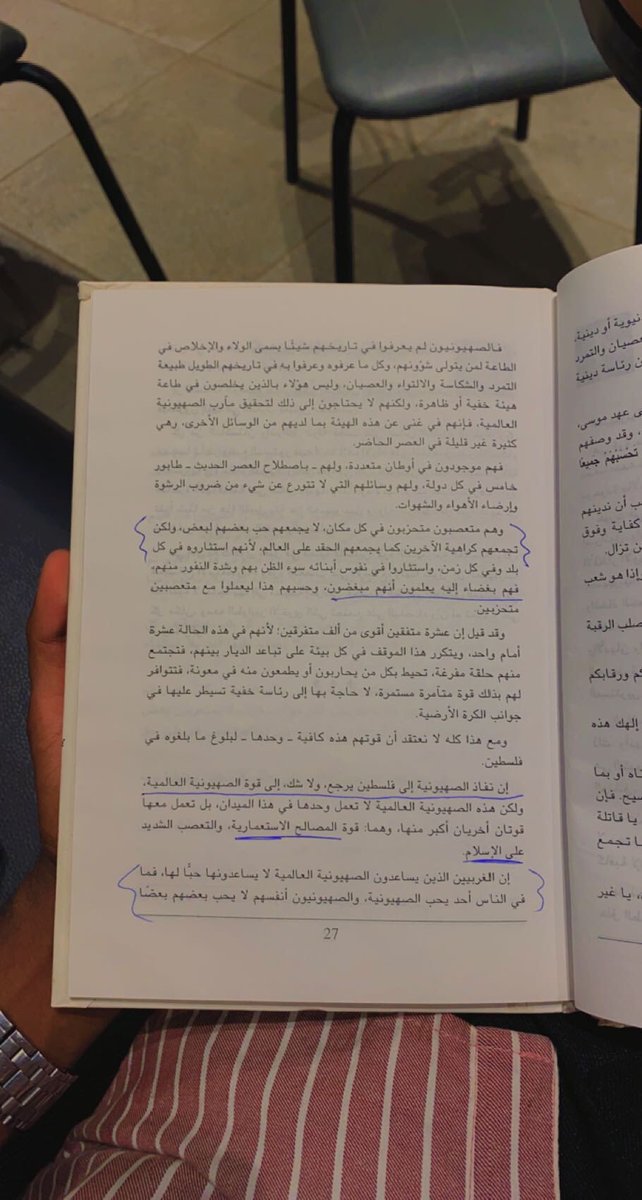 فالصهيونيون لم يعرفوا في تاريخهم شيئًا يسمى الولاء والإخلاص في
الطاعة لمن يتولى شؤونهم، وكل ما عرفوه وعرفوا به في تاريخهم الطويل طبيعة
التمرد والشكاسة والالتواء والعصيان، وليس هؤلاء بالذين يخلصون في طاعة
هيئة خفية أو ظاهرة، ولكنهم لا يحتاجون إلى ذلك لتحقيق مآرب الصهيونية
العالمية، فإنهم في غنى عن هذه الهيئة بما لديهم من الوسائل الأخرى، وهي
كثيرة غير قليلة في العصر الحاضر.
فهم موجودون في أوطان متعددة، ولهم ـ باصطلاح العصر الحديث ـ طابور
خامس في كل دولة، ولهم وسائلهم التي لا تتورع عن شيء من ضروب الرشوة
وإرضاء الأهواء والشهوات.
وهم متعصبون متحزبون في كل مكان، لا يجمعهم حب بعضهم لبعض، ولكن
تجمعهم كراهية الآخرين كما يجمعهم الحقد على العالم، لأنهم استثاروه في كل
بلد وفي كل زمن، واستثاروا في نفوس أبنائه سوء الظن بهم وشدة النفور منهم،
فهم بغضاء إليه يعلمون أنهم مبغضون، وحسبهم هذا ليعملوا مع متعصبين
متحزبين.
وقد قيل إن عشرة متفقين أقوى من ألف متفرقين؛ لأنهم في هذه الحالة عشرة
أمام واحد، ويتكرر هذا الموقف في كل بيئة على تباعد الديار بينهم، فتجتمع
منهم حلقة مفرغة، تحيط بكل من يحاربون أو يطمعون منه في معونة، فتتوافر
لهم بذلك قوة متآمرة مستمرة، لا حاجة بها إلى رئاسة خفية تسيطر عليها في
جوانب الكرة الأرضية.
ومع هذا كله لا نعتقد أن قوتهم هذه كافية ـ وحدها ـ لبلوغ ما بلغوه في
فلسطين.
إن نفاذ الصهيونية إلى فلسطين يرجع، ولا شك، إلى قوة الصهيونية العالمية،
ولكن هذه الصهيونية العالمية لا تعمل وحدها في هذا الميدان، بل تعمل معها
قوتان أخريان أكبر منها، وهما: قوة المصالح الاستعمارية، والتعصب الشديد
على الإسلام.
إن الغربيين الذين يساعدون الصهيونية العالمية لا يساعدونها حبًّا لها، فما
في الناس أحد يحب الصهيونية، والصهيونيون أنفسهم لا يحب بعضهم بعضًا
27
نيوية أو دينية،
عصيان والتمرد
ن رئاسة دينية
ى عهد موسى،
، وقد وصفهم
تَحْسَبُهُمْ جَمِيعًا
ب أن ندينهم
كفاية وفوق
ن تزال.
إذا هو شعب
صلب الرقبة
كم ورقابكم
إلهك هذه
تاه أو بما
سيح. فإن
يا قاتلة
ا تجمع
، يا غير